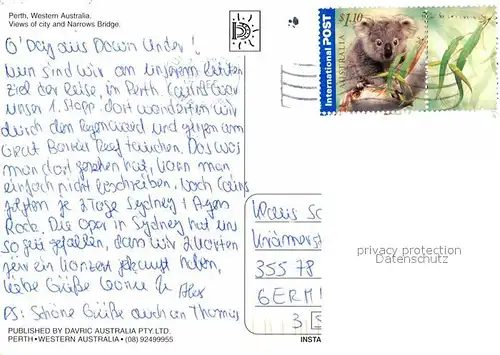 Perth, Western Australia.
Views of city and Narrows Bridge.
G'Day aus Down Under!
Nun sind wir an unserem letzten
Ziel der Reise, in Perth. Cairns war
unser 1. Stopp, dort wanderten wir
durch den Regenwald und gingen am
Great Barrier Reef tauchen. Das was
man dort gesehen hat, kann man
einfach nicht beschreiben. Nach Cairns
folgten je 3 Tage Sydney + Ayers
Rock. Die Oper in Sydney hat uns
so gut gefallen, dass wir 2 Karten
für ein Konzert gekauft haben.
Liebe Grüße Alex
PS: Schöne Grüße auch an Thomas
PUBLISHED BY DAVRIC AUSTRALIA PTY. LTD.
PERTH • WESTERN AUSTRALIA • (08) 92499955
International POST
AUSTRALIA
$1.10
Klaus
35578
GERM
3
privacy protection
Datenschutz
INSTA